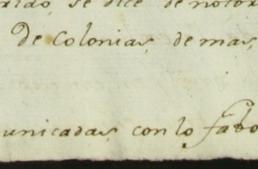 se dice de notor
de Colonias, de mas,
unicadas, con lo favo